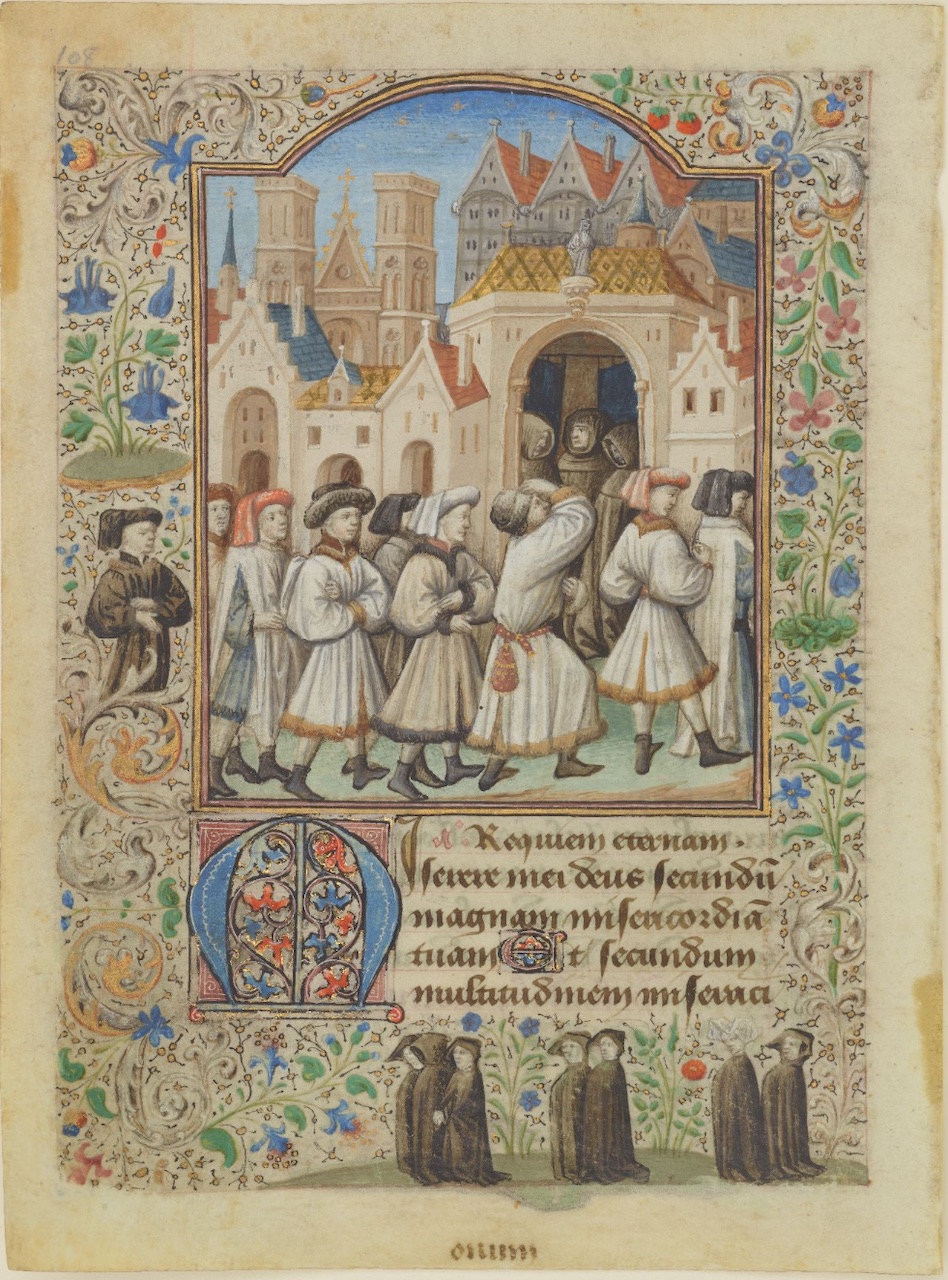 108
Requiem eternam.
MIserere mei deus secundū
magnam misericordiā
tuam Et secundum
multitudinem miseraci